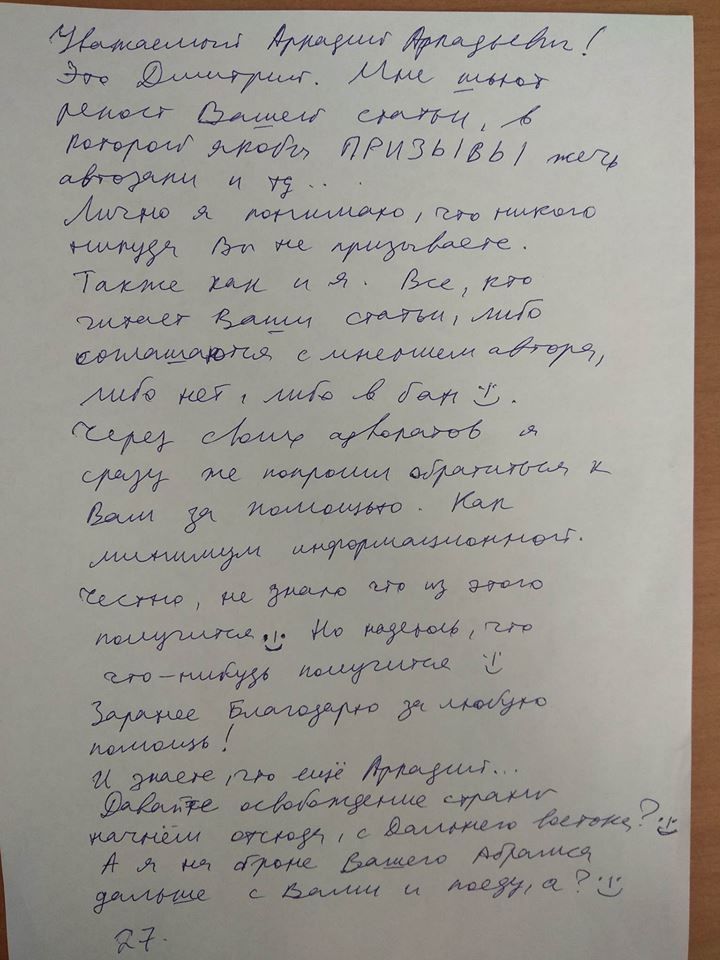 Уважаемый Аркадий Аркадьевич!
Это Дмитрий. Мне шьют
репост Вашей статьи, в
которой якобы ПРИЗЫВЫ жечь
автозаки и тд...
Лично я понимаю, что никого
никуда Вы не призываете.
Также как и я. Все, кто
читает Ваши статьи, либо
соглашаются с мнением автора,
либо нет, либо в бан :).
Через своих адвокатов я
сразу же попросил обратиться к
Вам за помощью. Как
минимум информационной.
Честно, не знаю что из этого
получится :) Но надеюсь, что
что-нибудь получится :)
Заранее Благодарю за любую
помощь!
И знаете, что ещё Аркадий...
Давайте освобождение страны
начнём отсюда, с Дальнего востока? :)
А я на броне Вашего Абрамса
дальше с Вами и поеду, а? :)
27.